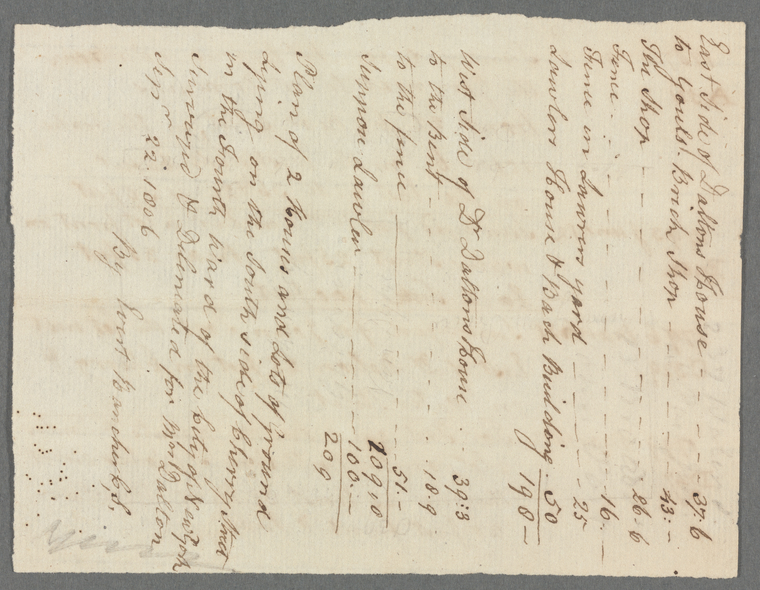 East Side of Daltons House - - - - 37.6
to Goulds Brick Shop - - - 43:-
The Shop - - - - 26.6
Fence - - - - 16.-
Fence in Lawlers yard - - - - 25
Lawlers House & Back Building - 50
198-
West Side of Dr Daltons House . . . 39:3
to the Bent - - - - 18.9
to the fence - - - - 51.-
10918
Suppose Lawler - - - - 100.-
209
Plan of 2 Houses and Lots of ground
Lying on the South side of Cherry Street
in the fourth ward of the City of New York
Surveyed & Delineated for Wm Dalton
Sepr 22. 1806
By Evert Bancker C.S.